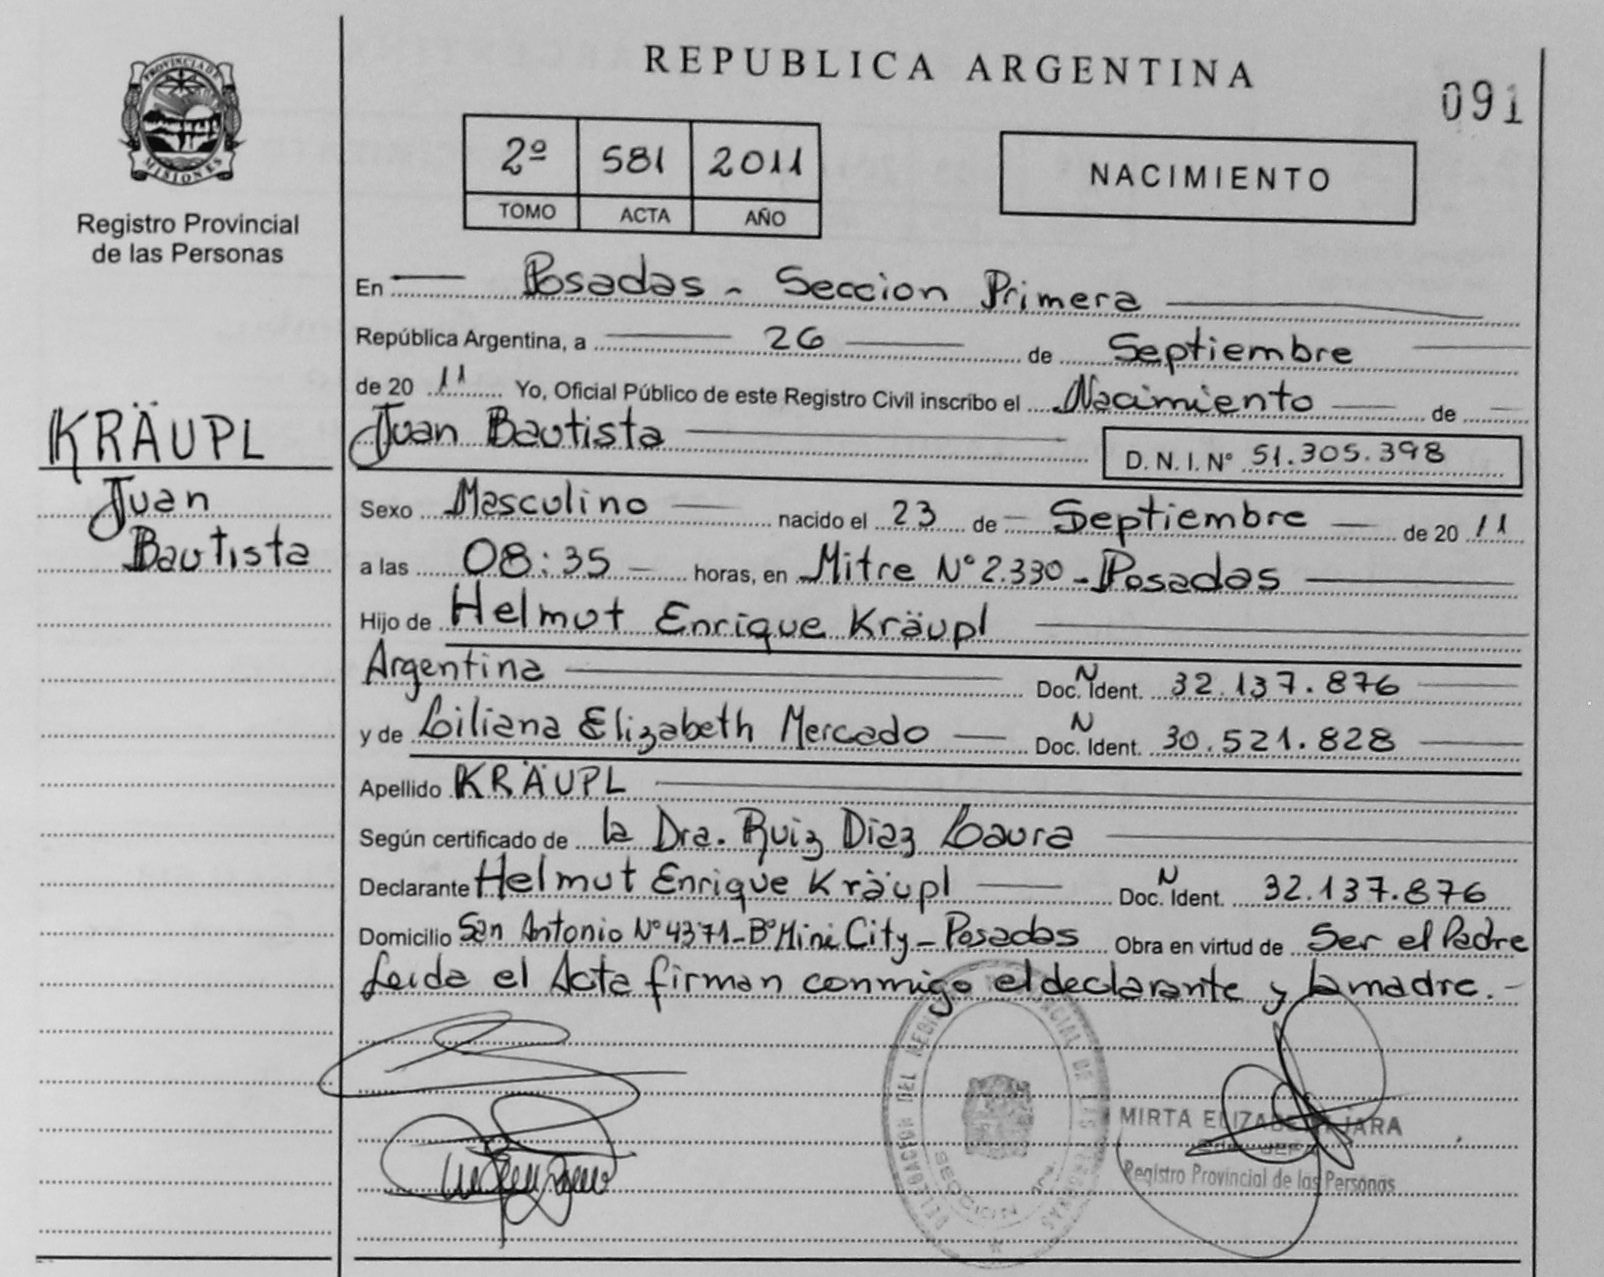 PROVINCIA DE
MISIONES
Registro Provincial
de las Personas
KRÄUPL
Juan
Bautista
REPUBLICA ARGENTINA
091
2º 581 2011
TOMO ACTA AÑO
NACIMIENTO
En Posadas - Seccion Primera
República Argentina, a 26 de Septiembre
de 20 11 Yo, Oficial Público de este Registro Civil inscribo el Nacimiento de
Juan Bautista D. N. I. Nº 51.305.398
Sexo Masculino nacido el 23 de Septiembre de 20 11
a las 08:35 horas, en Mitre Nº 2.330 - Posadas
Hijo de Helmut Enrique Kräupl
Argentina Doc. N Ident. 32.137.876
y de Liliana Elizabeth Mercado Doc. N Ident. 30.521.828
Apellido KRÄUPL
Según certificado de la Dra. Ruiz Diaz Laura
Declarante Helmut Enrique Kräupl Doc. N Ident. 32.137.876
Domicilio San Antonio Nº 4371 - Bº Mini City - Posadas Obra en virtud de Ser el Padre
Leida el Acta firman conmigo el declarante y la madre.-
MIRTA ELIZABETH JARA
Registro Provincial de las Personas